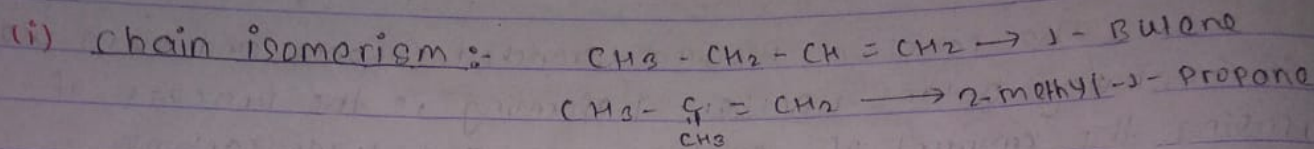 (i) Chain isomerism :- CH3 - CH2 - CH = CH2 → 1 - Butene
CH3 - C = CH2 → 2-methyl-1-Propene
CH3